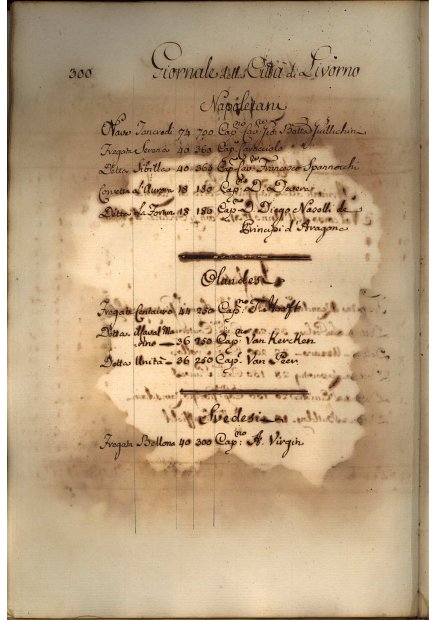 300 Giornale della Città di Livorno
Napoletani
Nave Tancredi 74 700 Cap.no Cav.e Gio Batta
Fregata Serena 40 360 Cap. Cav. Caracciolo
Detta Sibilla 40 360 Cap. Cav. Francesco Spannocchi
Corvetta l'Aurora 18 180 Cap.no D.
Detta la Fortuna 18 180 Cap.no D. Diego Naselli de
Principi d'Aragone
Olandesi
Fregata Centauro 44 250 Cap.no T. Hooft
Detta
36 250 Cap.no Van Kercken
Detta Unità 36 250 Cap. Van Peer
Svedesi
Fregata Bellona 40 300 Cap:no A. Virgin